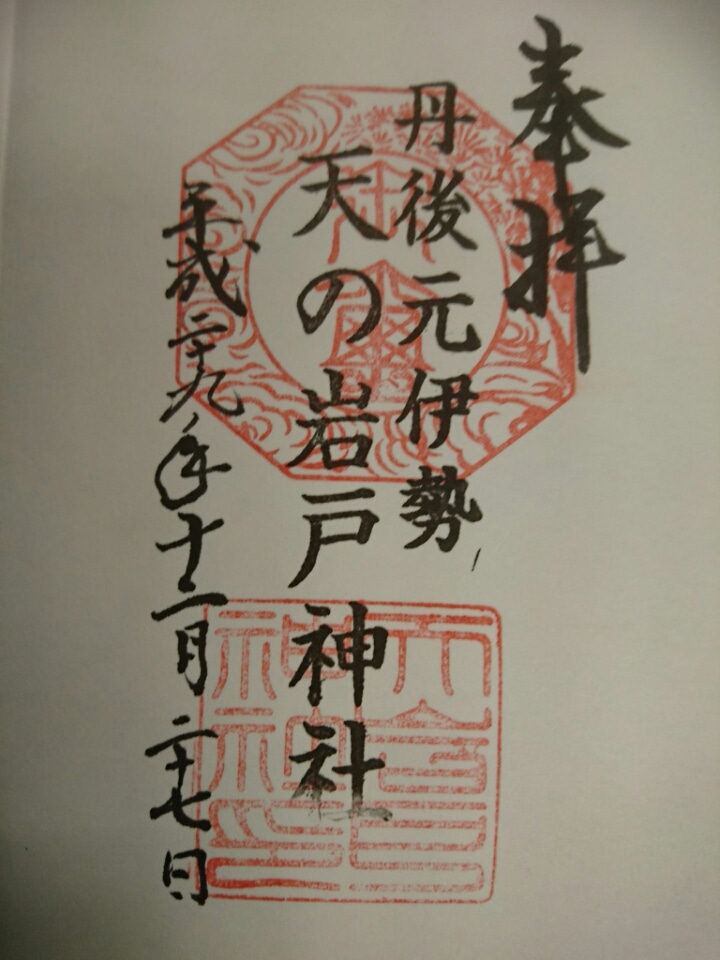 奉拝
丹後元伊勢
天の岩戸神社
平成二十九年十二月二十七日